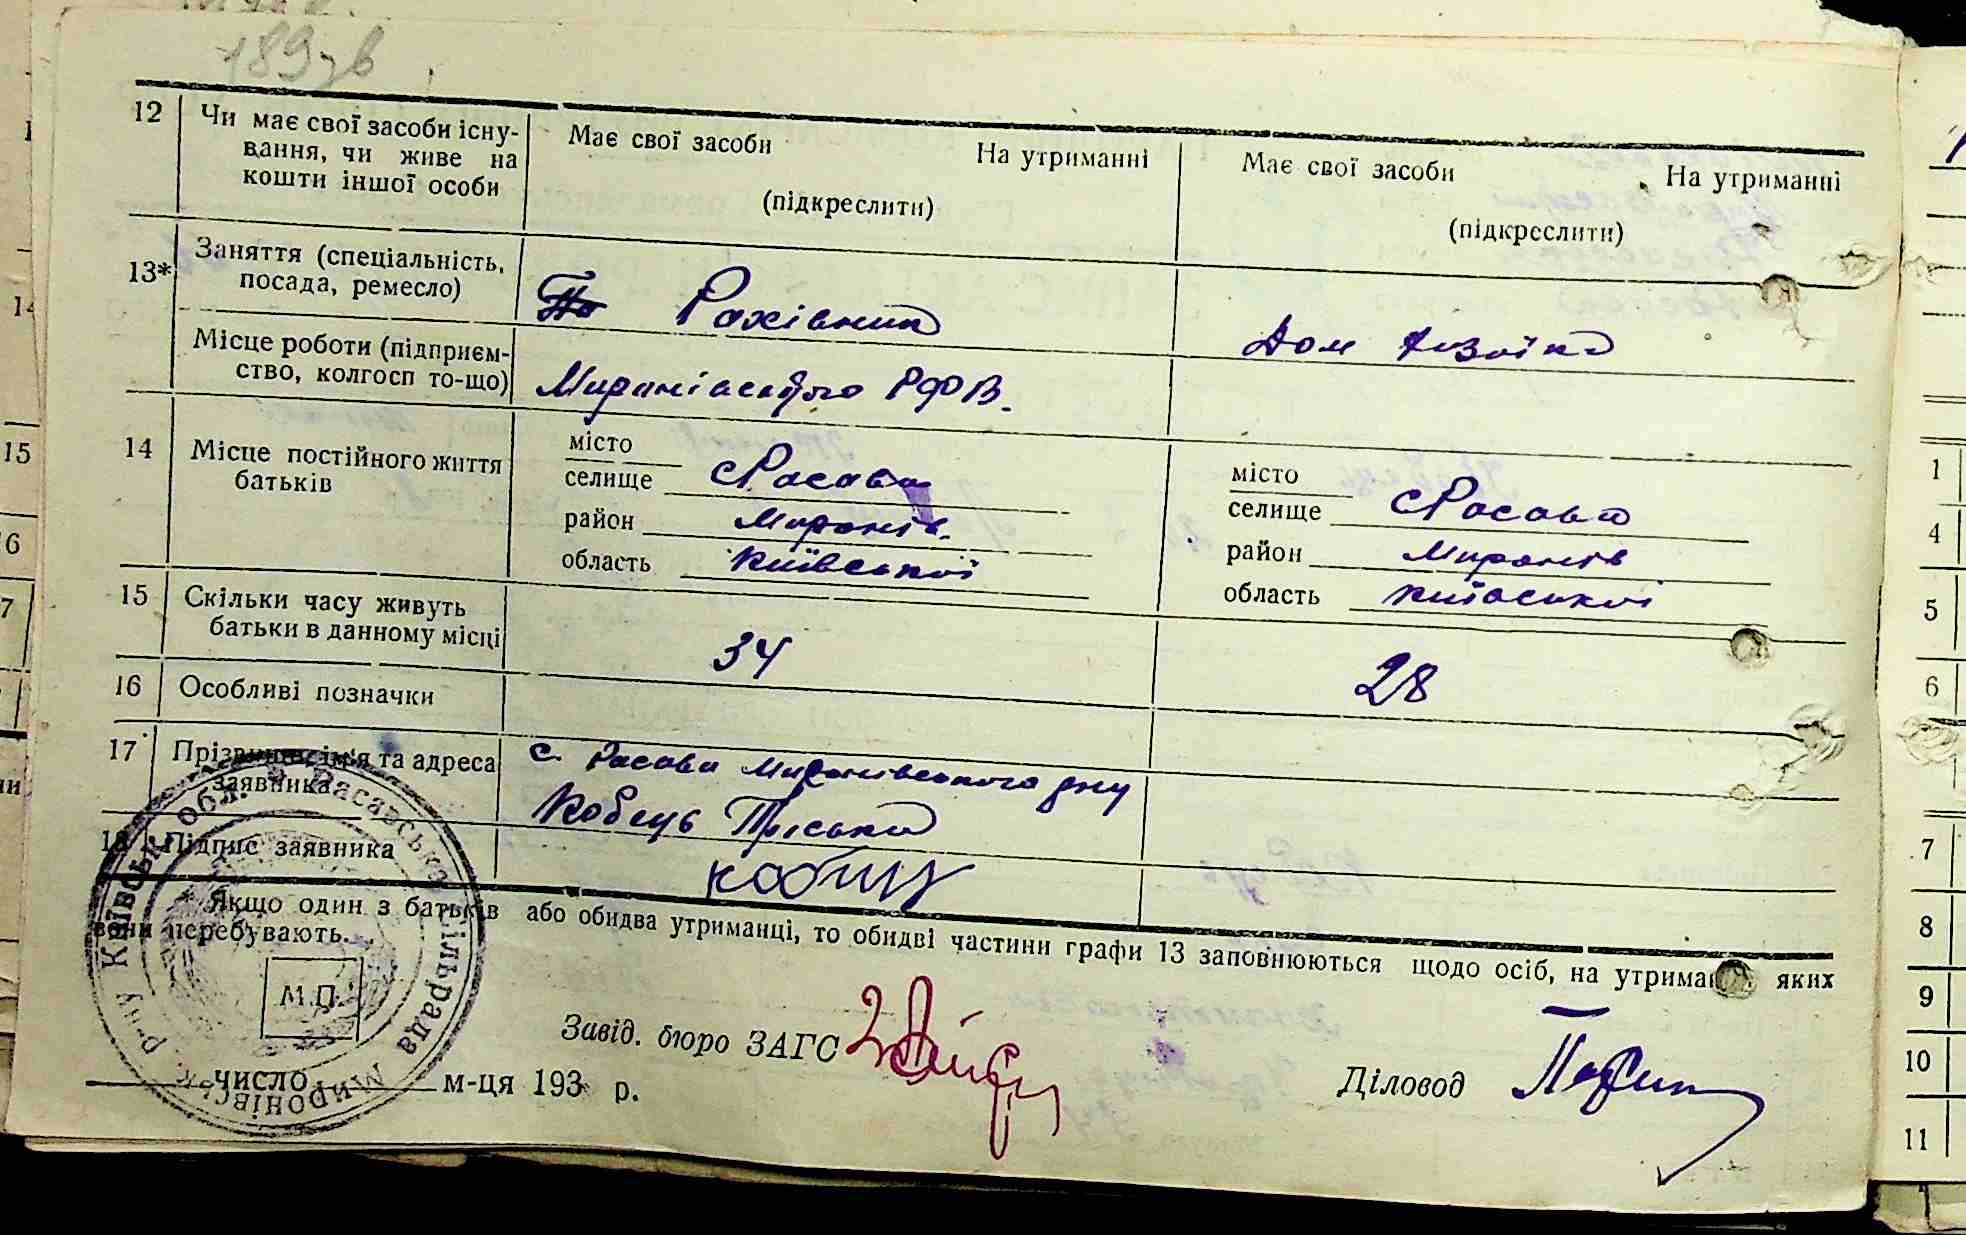 189зв
12 Чи має свої засоби існу-
вання, чи живе на
кошти іншої особи
Має свої засоби На утриманні
(підкреслити)
Має свої засоби На утриманні
(підкреслити)
13* Заняття (спеціальність,
посада, ремесло)
Рахівник
Дом хазяйка
Місце роботи (підприєм-
ство, колгосп то-що)
Миронівського РФВ.
14 Місце постійного життя
батьків
місто
селище с Расава
район Миронів.
область Київської
місто
селище с Расава
район Миронів
область Київської
15 Скільки часу живуть
батьки в данному місці
34
28
16 Особливі позначки
17 Прізвище, ім'я та адреса
заявника
с. Расава Миронівського рну
Кобець Пріська
18 Підпис заявника
Кобець
* Якщо один з батьків або обидва утриманці, то обидві частини графи 13 заповнюються щодо осіб, на утриманні яких
вони перебувають.
М.П.
Расавська сільрада Миронівськ. р-ну Київськ. обл.
Завід. бюро ЗАГС
Діловод
число м-ця 193 р.
14
15
16
17
1
4
5
6
7
8
9
10
11